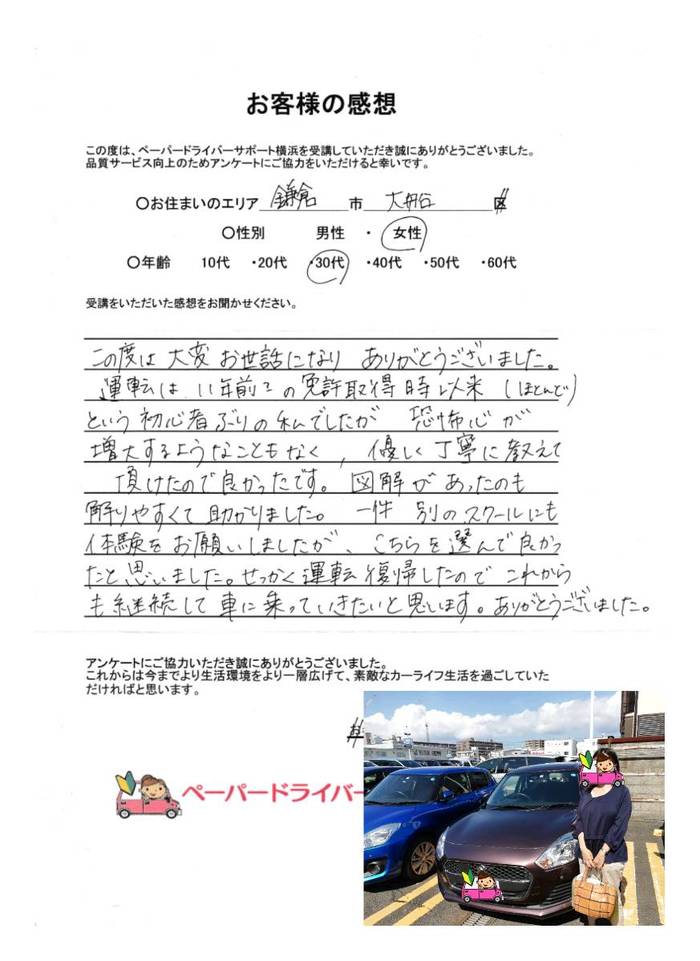 お客様の感想
この度は、ペーパードライバーサポート横浜を受講していただき誠にありがとうございました。
品質サービス向上のためアンケートにご協力をいただけると幸いです。
〇お住まいのエリア 鎌倉 市 大船谷 区
〇性別 男性 ・ 女性
〇年齢 10代 ・20代 ・30代 ・40代 ・50代 ・60代
受講をいただいた感想をお聞かせください。
この度は 大変 お世話になり ありがとうございました。
運転は 11年前の 免許取得時以来 (ほとんど)
という 初心者ぶりの 私でしたが 恐怖心が
増大するようなこともなく、優しく 丁寧に 教えて
頂けたので 良かったです。 図解が あったのも
解りやすくて 助かりました。 一件 別の スクールにも
体験を お願いしましたが、こちらを 選んで 良かっ
たと 思いました。せっかく 運転 復帰したので これから
も 継続して 車に 乗って いきたいと 思います。 ありがとうございました。
アンケートにご協力いただき誠にありがとうございました。
これからは今までより生活環境をより一層広げて、素敵なカーライフ生活を過ごしていた
だければと思います。
ペーパードライバー